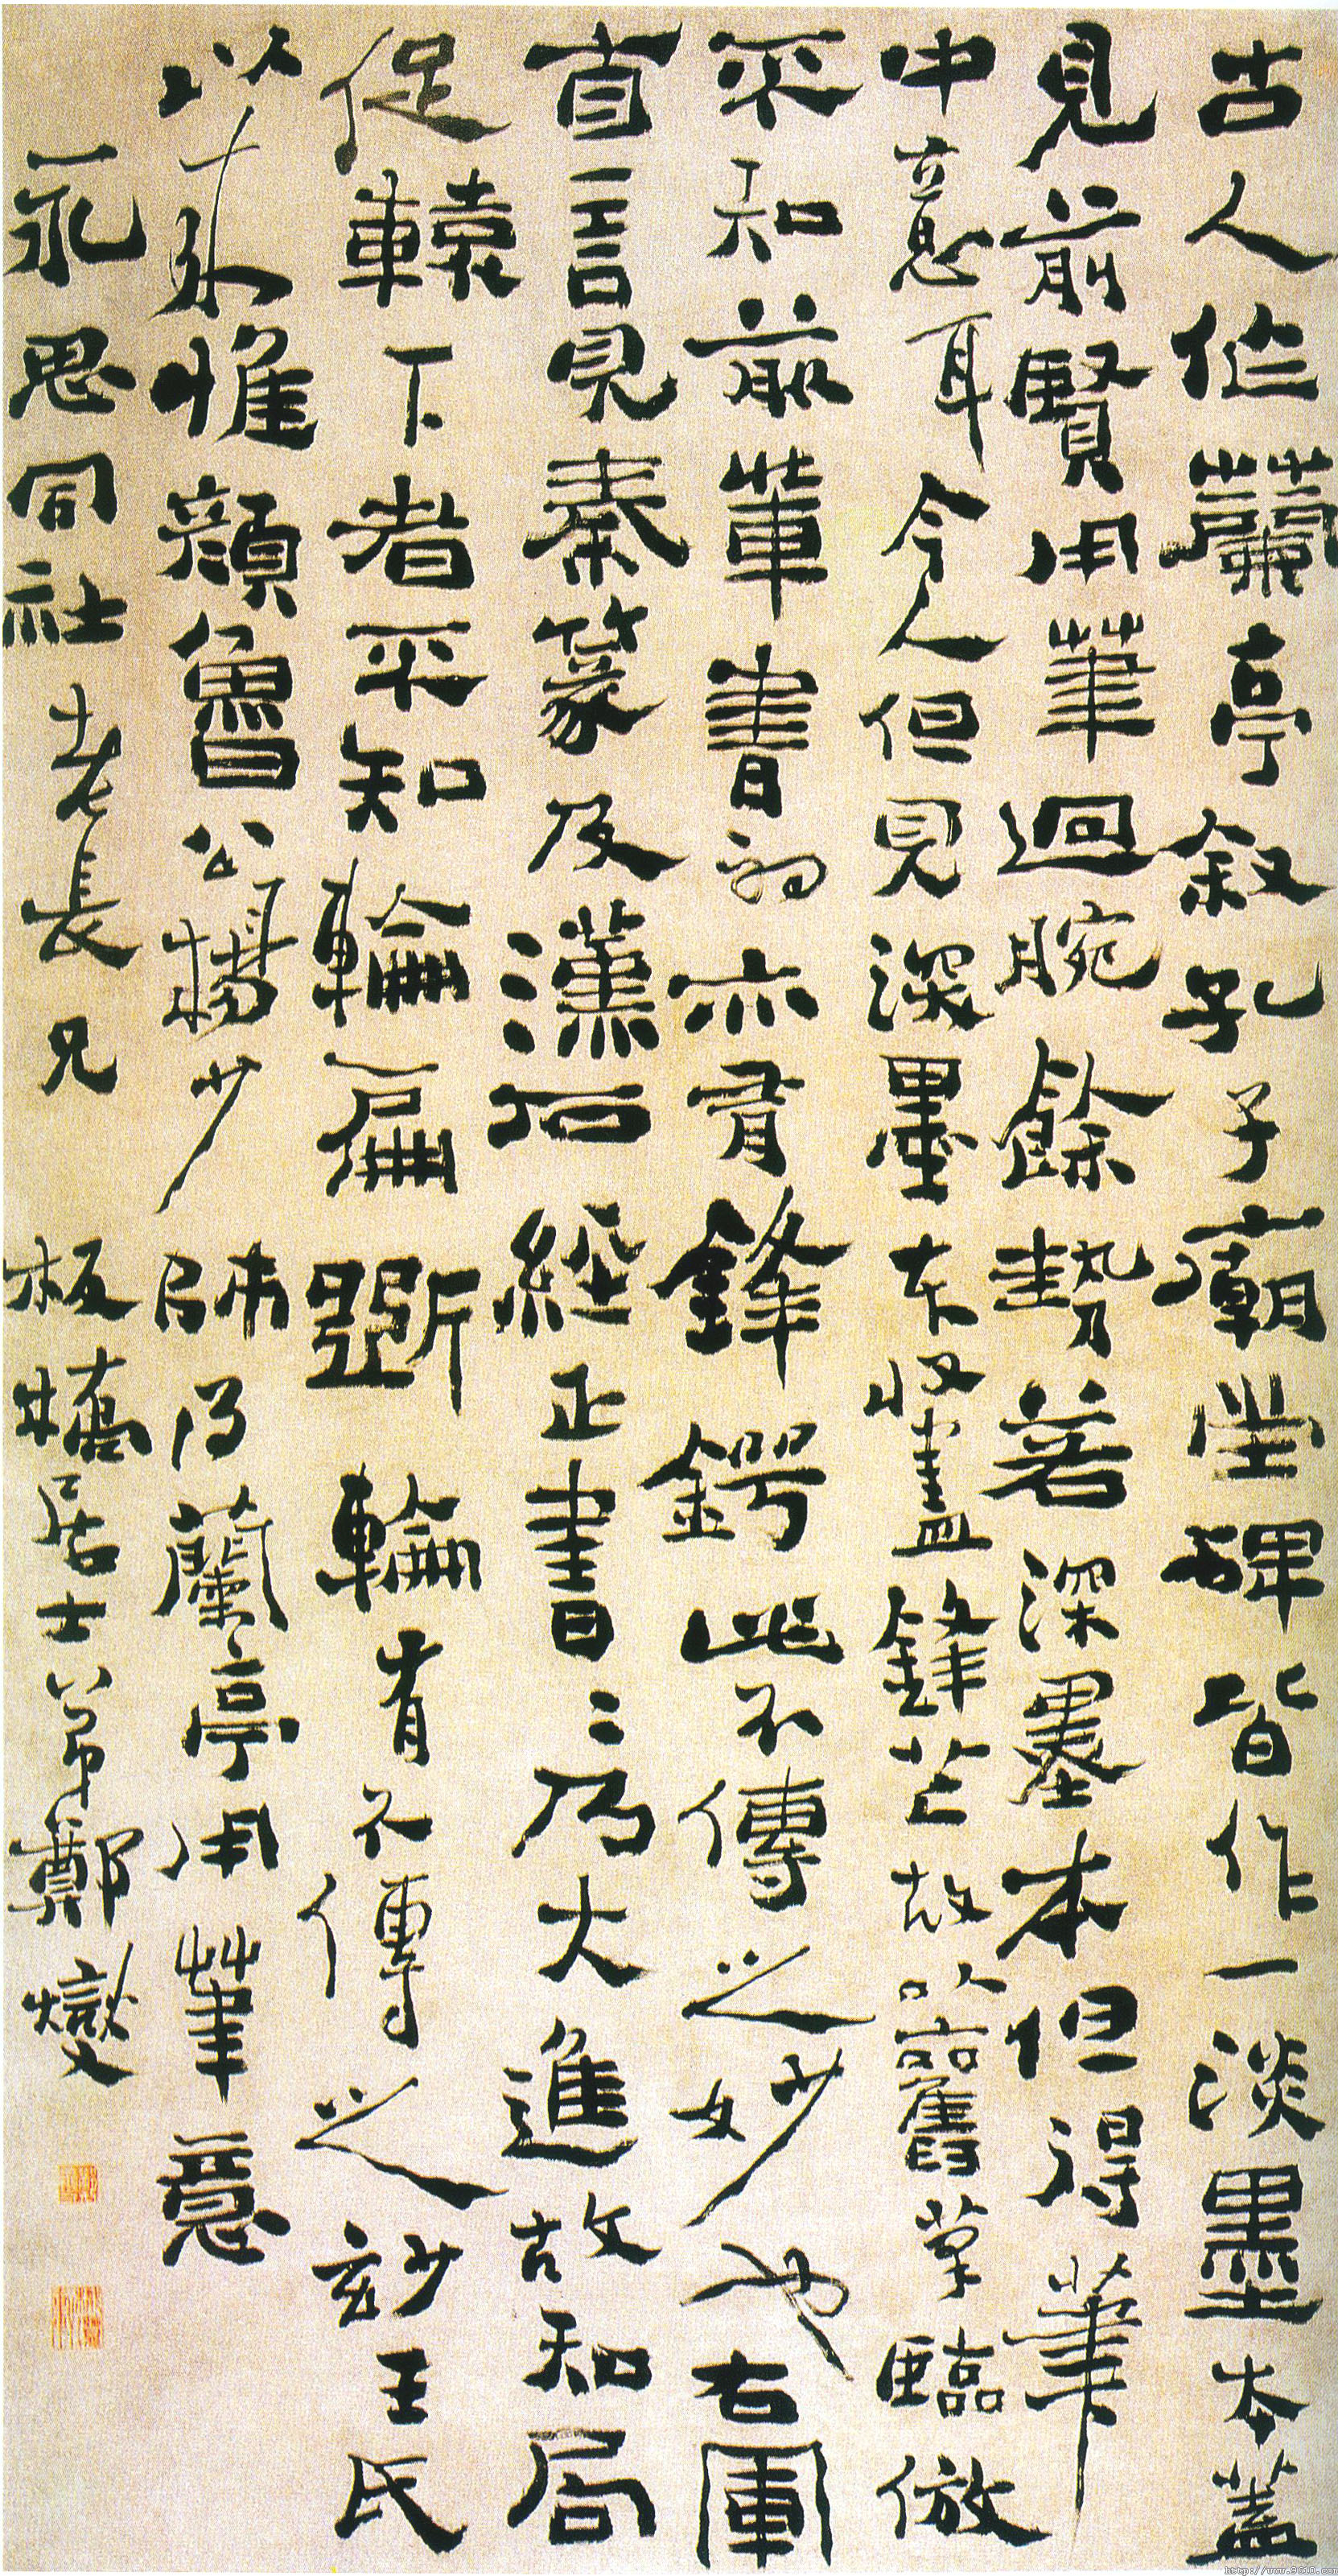 古人作蘭亭叙孔子廟堂碑皆作一淡墨本蓋
見前賢用筆迴腕餘勢若深墨本但得筆
中意耳今人但見深墨本收盡鋒芒故以舊筆臨倣
不知前輩書初亦有鋒鍔此不傳之妙也右軍
自言見秦篆及漢石經正書書乃大進故知局
促轅下者不知輪扁斲輪有不傳之妙王氏
以來惟顏魯公楊少師得蘭亭用筆意
永思同社老長兄 板橋居士弟鄭燮